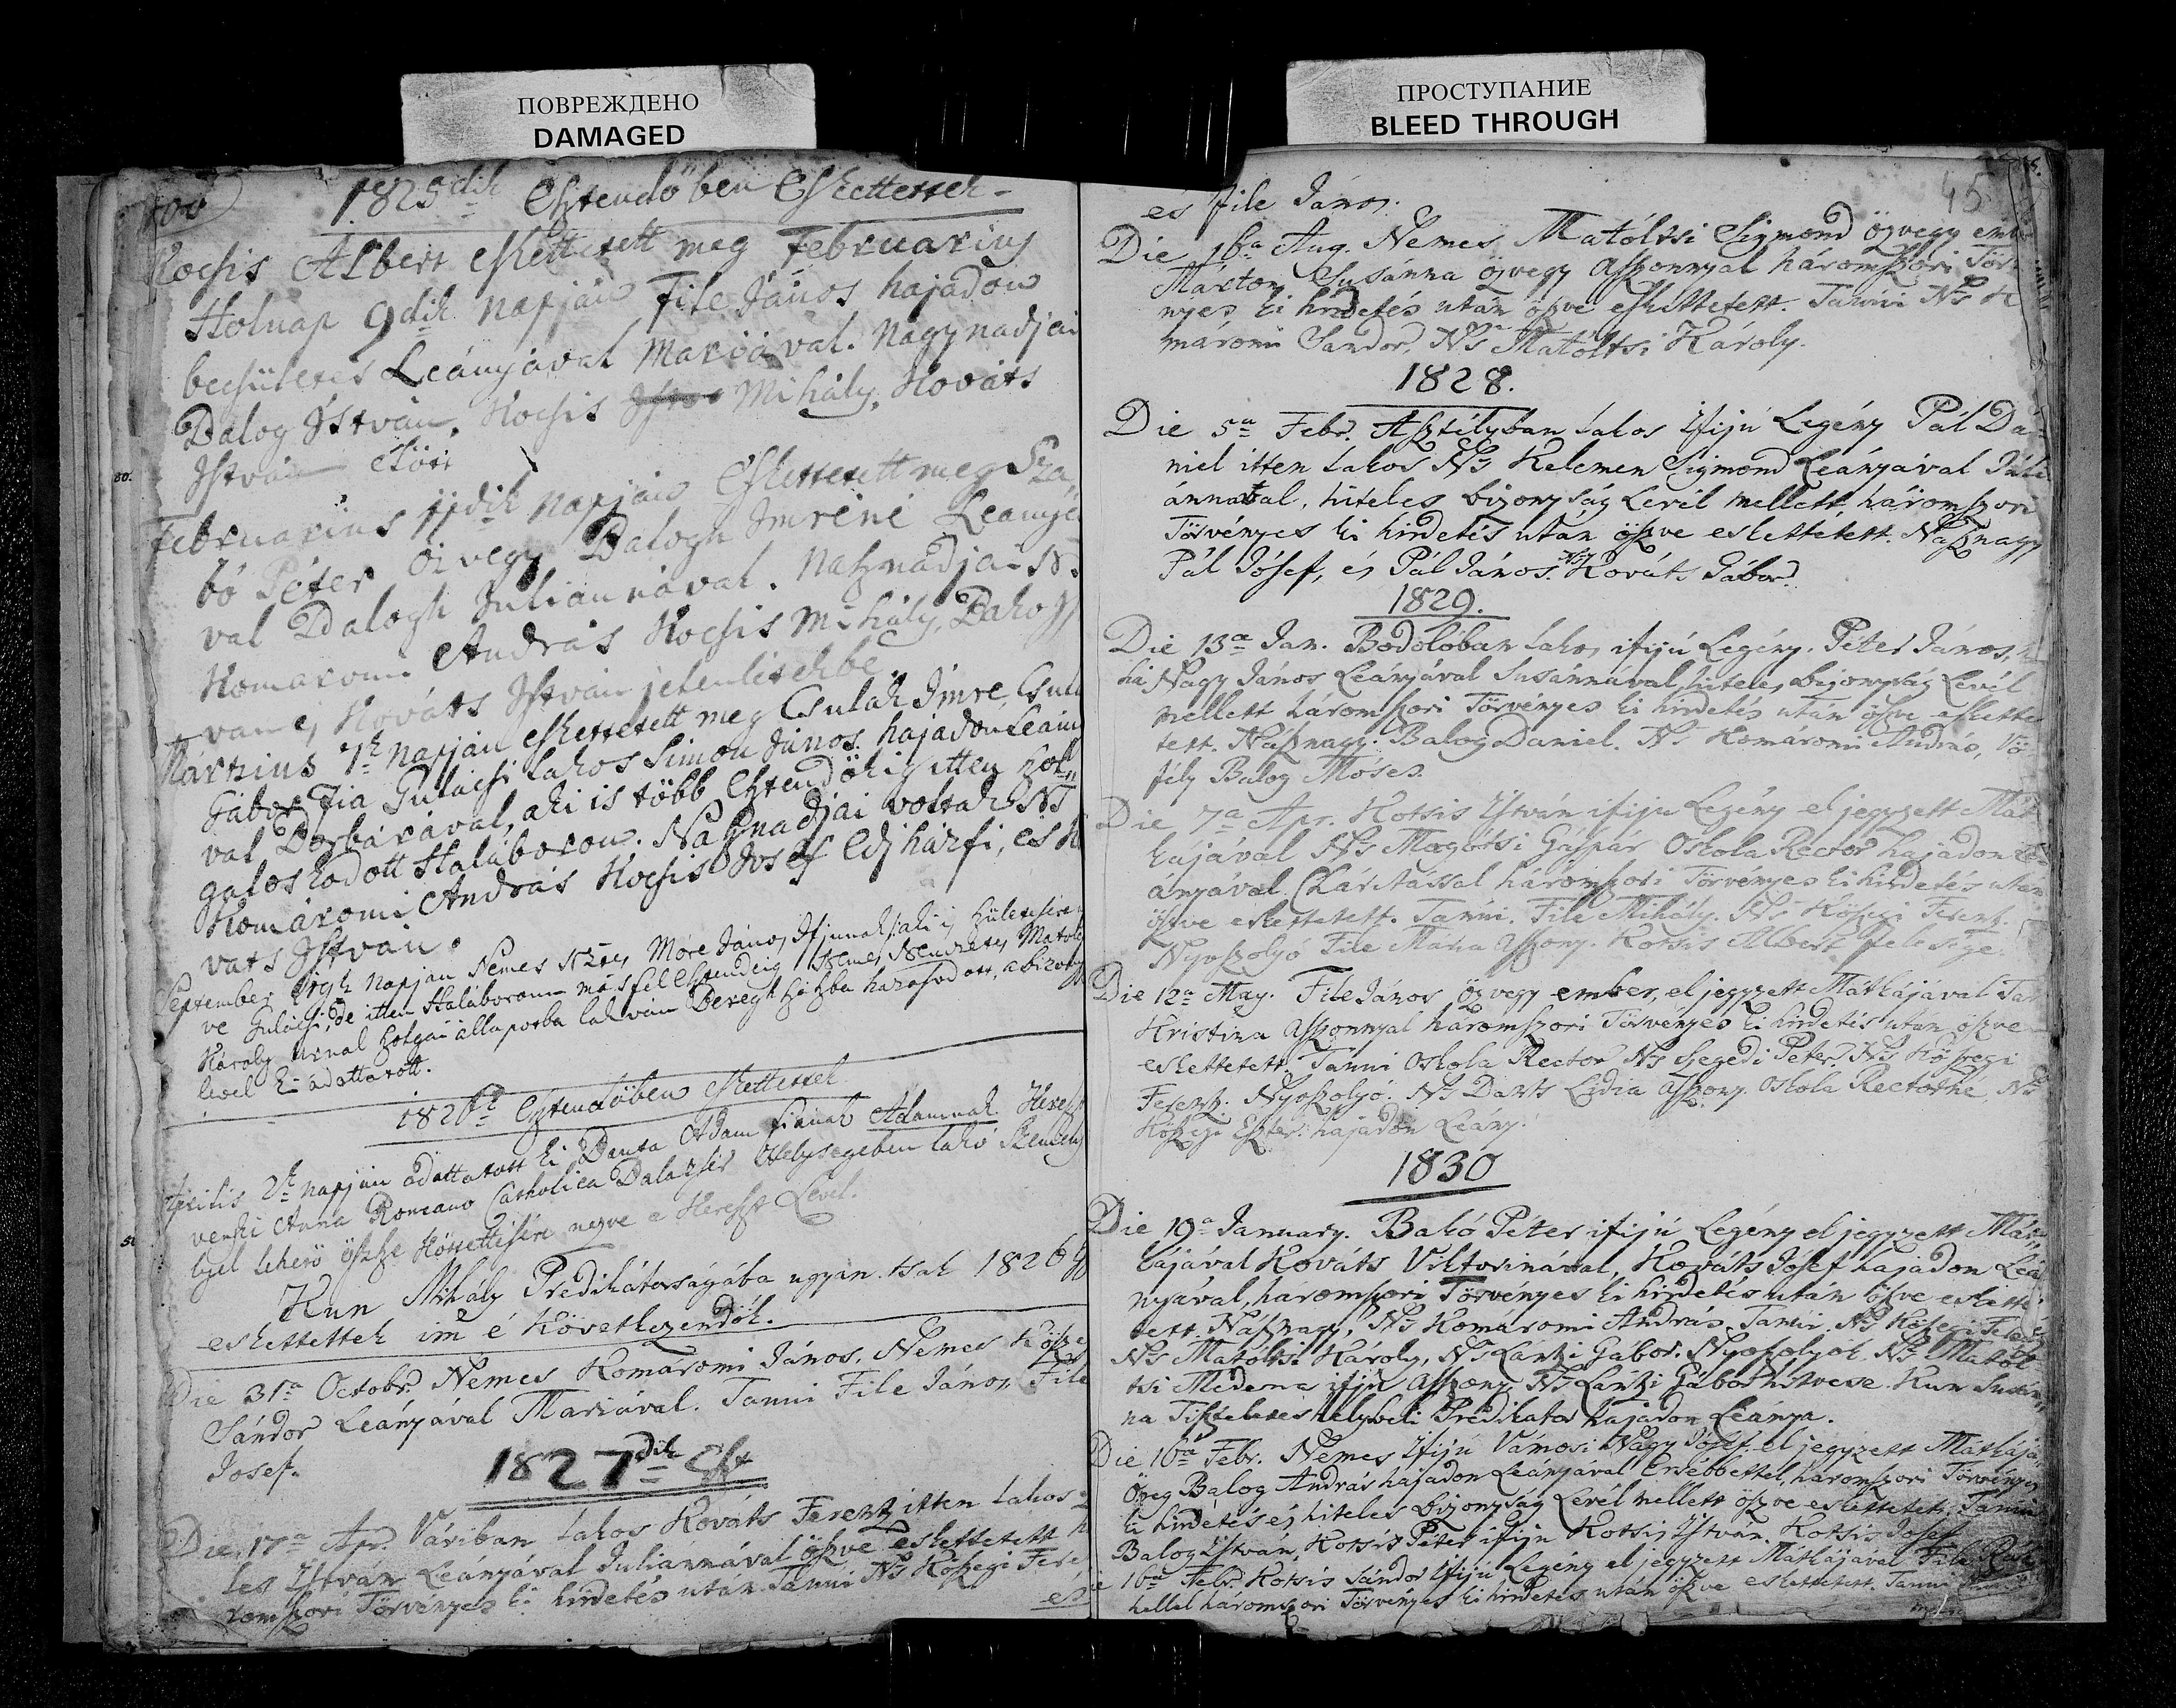 ПОВРЕЖДЕНО
DAMAGED
1825dik Esztendőben Eskettettek
Kocsis Albert eskettetett meg Februarius
Holnap 9dik napján File János hajadon
becsületes Leányával Mariával. Nagynadjai
Balog István, Kocsis Mihály, Kováts
István
Februarius 11dik napján Eskettetett meg Sza
bó Péter özvegy Balogh Imréné Leányá
val Balogh Juliannával. Nasznadjai N.
Komaromi András Kocsis Mihály, Bako
van és Kováts István jelenlétekbe
Mártzius 7k napján eskettetett meg Csulak Imre, Csula
Gábor Fia Gulácsi lakos Simon János hajadon Leány
val Borbárával, aki is több Esztendőkig itten szol
gáloskodott Halaboron. Nasznadjai voltak Ns
Komáromi András Kocsis Josef Edj házfi, és K
vats István.
September napján Nemes Móre János Ifjunak, aki is születésire
ve Gulácsi, de itten Halaboron másfél Esztendeig Nemes Nemzetes Matolcsi
Károly Urnal szolgai állapotba lakván Beregh
levél ki adattatott.
1826k Esztendőben eskettettek
Aprilis 2k napján adattatott ki Danta Adam fiának Adamnak
venszki Anna Romano Catholica Helységeben lakó Személy
lyel lehető öszsze Köttettésire nezve e Levél.
Kun Mihály Prédikátorságába ugyan tsak 1826
eskettettek im é Következendők.
Die 31a Octobr. Nemes Komáromi János, Nemes Kösze
Sándor Leányával Mariával. Tanui File János, File
Josef.
1827dik Est
Die 17a Apr. Váriban lakos Kováts Ferentz itten lakos
les István Leányával Juliannával öszve eskettetett h
romszori Törvényes ki hirdetés után. Tanui Ns Kőszegi Fere
és
ПРОСТУПАНИЕ
BLEED THROUGH
45
és File János.
Die 16a Aug. Nemes Matóltsi Sigmond özvegy emb
Márton Susánna özvegy Aszonnyal háromszori Tör
nyes ki hirdetés után öszve eskettetett. Tanúi Ns K
máromi Sandor, Ns Matóltsi Károly.
1828.
Die 5a Febr. Asztélyban lakos Ifijú Legény Pál Dá
niel itten lakos Ns Kelemen Sigmond Leányával Juli
ánnával, hiteles bizonyság Levél mellett háromszori
Törvényes ki hirdetés után öszve eskettetett. Násznagy
Pál Jósef, és Pál János. Ns Kováts Gábor.
1829.
Die 13a Jan. Bodolóban lakos ifijú Legény Péter János,
Nagy János Leányával Susánnával, hiteles bizonyság Levél
mellett háromszori Törvényes ki hirdetés után öszve eskette
tett. Násznagy: Balog Daniel. Ns Komáromi András, Vő
fély Balog Móses.
Die 7a Apr. Kotsis István ifijú Legény el jegyzett Mát
kájával Ns Mogótsi Gáspár Oskola Rector hajadon Le
ányával Cháritással háromszori Törvényes ki hirdetés után
öszve eskettetett. Tanúi. File Mihály. Ns Kőszegi Ferentz.
Nyoszolyó File Mária Aszszony. Kotsis Albert felesége.
Die 12a May. File János özvegy ember, el jegyzett Mátkájával
Kristina Aszonnyal háromszori Törvényes ki hirdetés után öszve
eskettetett. Tanui Oskola Rector Ns Szegedi Péter. Ns Kőszegi
Ferentz. Nyoszolyó: Ns Lidia Aszszony Oskola Rectorné, Ns
Kőszegi Eszter hajadon Leány.
1830
Die 19a January. Bakó Péter ifijú Legény el jegyzett Mát
kájával Kováts Viktorinával, Kováts Josef hajadon Leá
nyával, háromszori Törvényes ki hirdetés után öszve eskette
tett. Násznagy, Ns Komáromi András. Tanúi. Ns Kőszegi Ferentz
Ns Matóltsi Károly, Ns Lántzi Gábor. Nyoszolyok Ns Matól
tsi Mederne ifjú Aszszony. Ns Lántzi Gábor hitvese. Kun Susán
na Tiszteletes helybeli Prédikátor hajadon Leánya.
Die 16a Febr. Nemes Ifijú Vámosi Nagy Jósef el jegyzett Mátkája,
Öreg Balog András hajadon Leányával Ersébbettel, háromszori Törvényes
ki hirdetés és hiteles bizonyság Levél mellett öszve eskettetett. Tanui
Balog István, Kotsis Péter ifijú Kotsis István. Kotsis Josef
16a Febr. Kotsis Sándor Ifijú Legény el jegyzett Mátkájával File Rá
hellel háromszori Törvényes ki hirdetés után öszve eskettetett. Tanui